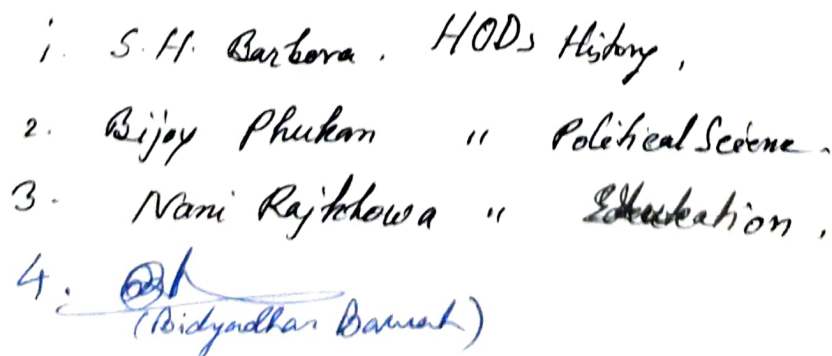 1. S. H. Barbora. HODs History,
2. Bijoy Phukan " Political Science.
3. Nani Rajkhowa " Education,
4.
(Bidyadhar Baruah)